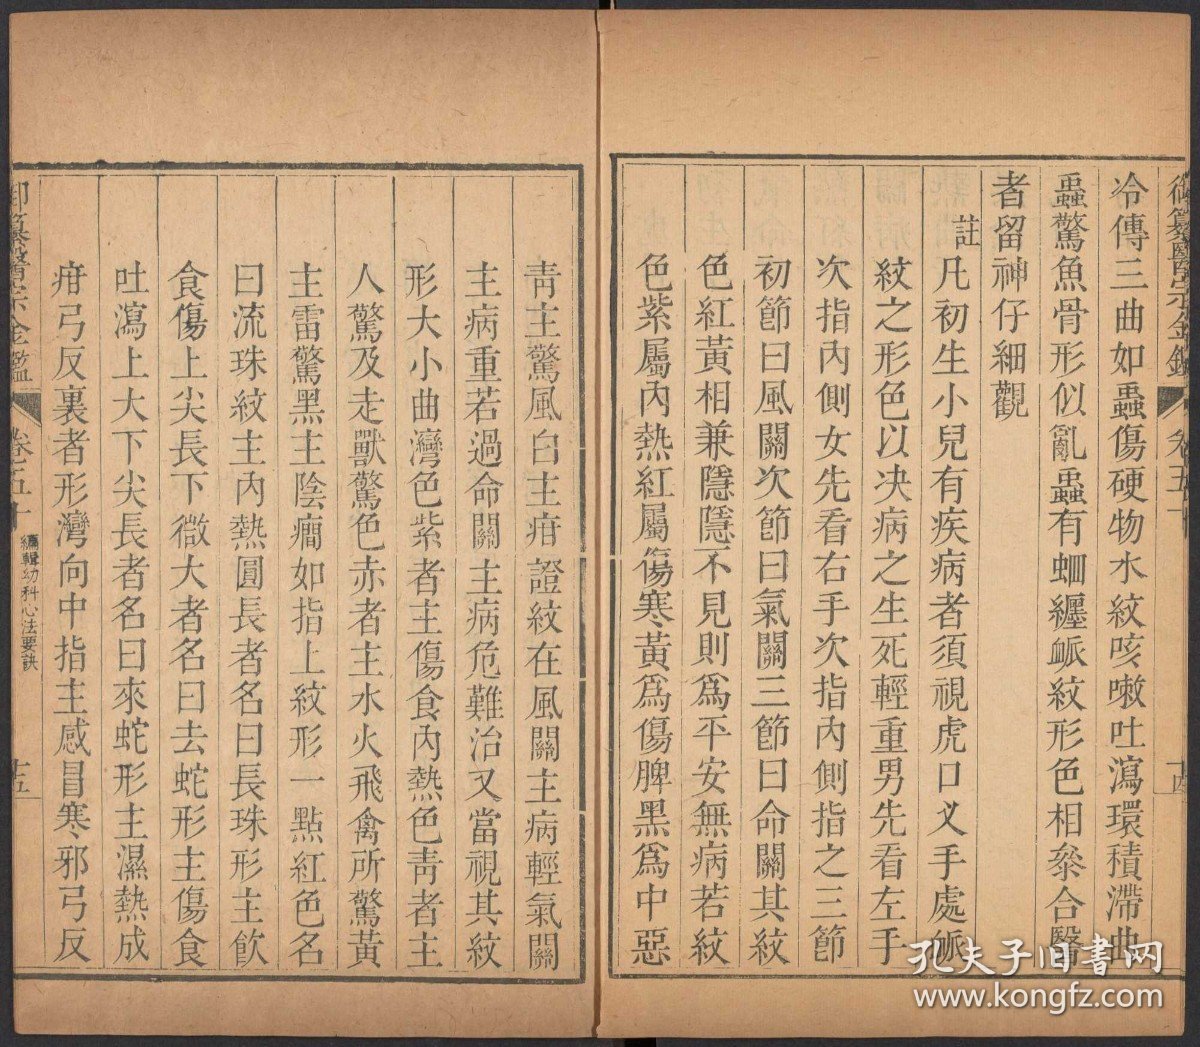 冷傳三曲如蟲傷硬物水紋咳嗽吐瀉環積滯曲
蟲驚魚骨形似亂蟲有蛔纏䘑紋形色相叅合醫
者留神仔細觀
註
凡初生小兒有疾病者須視虎口义手處䘑
紋之形色以决病之生死輕重男先看左手
次指內側女先看右手次指內側指之三節
初節曰風關次節曰氣關三節曰命關其紋
色紅黃相兼隱隱不見則爲平安無病若紋
色紫屬內熱紅屬傷寒黃爲傷脾黑爲中惡
靑主驚風白主疳證紋在風關主病輕氣關
主病重若過命關主病危難治又當視其紋
形大小曲灣色紫者主傷食內熱色靑者主
人驚及走獸驚色赤者主水火飛禽所驚黃
主雷驚黑主陰癎如指上紋形一點紅色名
曰流珠紋主內熱圓長者名曰長珠形主飮
食傷上尖長下微大者名曰去蛇形主傷食
吐瀉上大下尖長者名曰來蛇形主濕熱成
疳弓反裏者形灣向中指主感冒寒邪弓反
御纂醫宗金鑑
卷五十
編輯幼科心法要訣
十五
孔夫子旧书网
www.kongfz.com